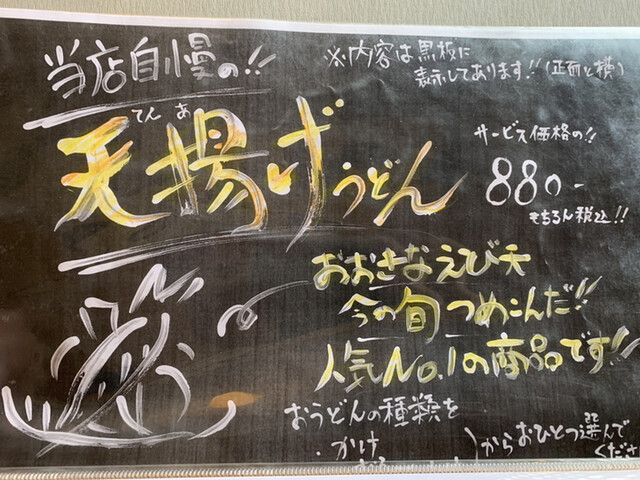 当店自慢の!!
※内容は黒板に
表示してあります!!(正面と横)
てん あ
天揚げうどん
サービス価格の!!
880-
もちろん税込!!
おおきなえび天
今の旬つめこんだ!!
人気No.1の商品です!!
おうどんの種類を
・かけ
)からおひとつ選んで
くださ